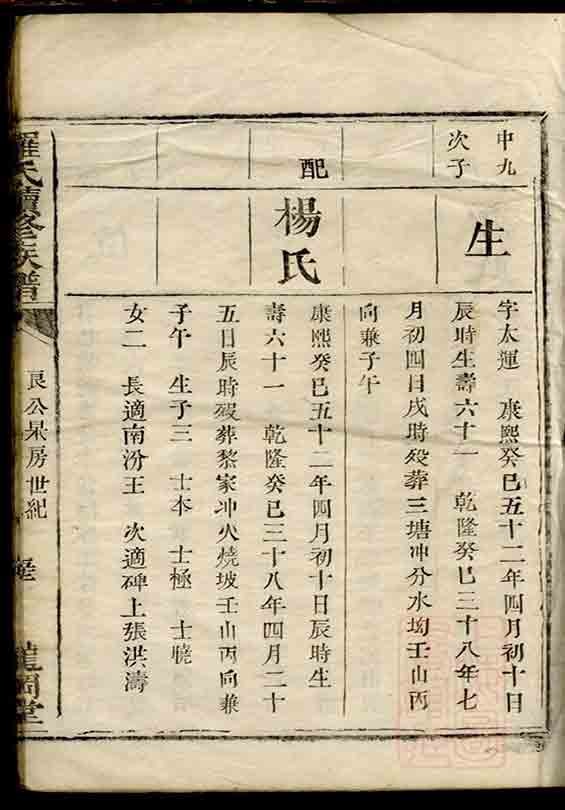 申九
次子
生
字太運　康熙癸巳五十二年四月初十日
辰時生壽六十一　乾隆癸巳三十八年七
月初四日戌時歿葬三塘冲分水坳壬山丙
向兼子午
配
楊氏
康熙癸巳五十二年四月初十日辰時生
壽六十一　乾隆癸巳三十八年四月二十
五日辰時歿葬黎家冲火燒坡壬山丙向兼
子午　生子三　士本　士極　士曉
女二　長適南汾王　次適碑上張洪濤
羅氏續修族譜
良公杲房世紀
龍岡堂